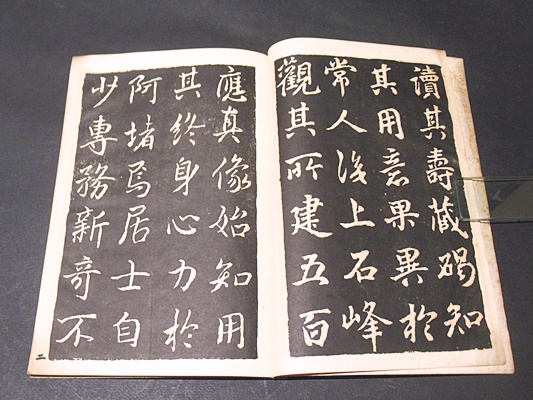 讀其壽藏碣知
其用意果異於
常人後上石峰
觀其所建五百
應真像始知用
其終身心力於
阿堵焉居士自
少專務新奇不
二